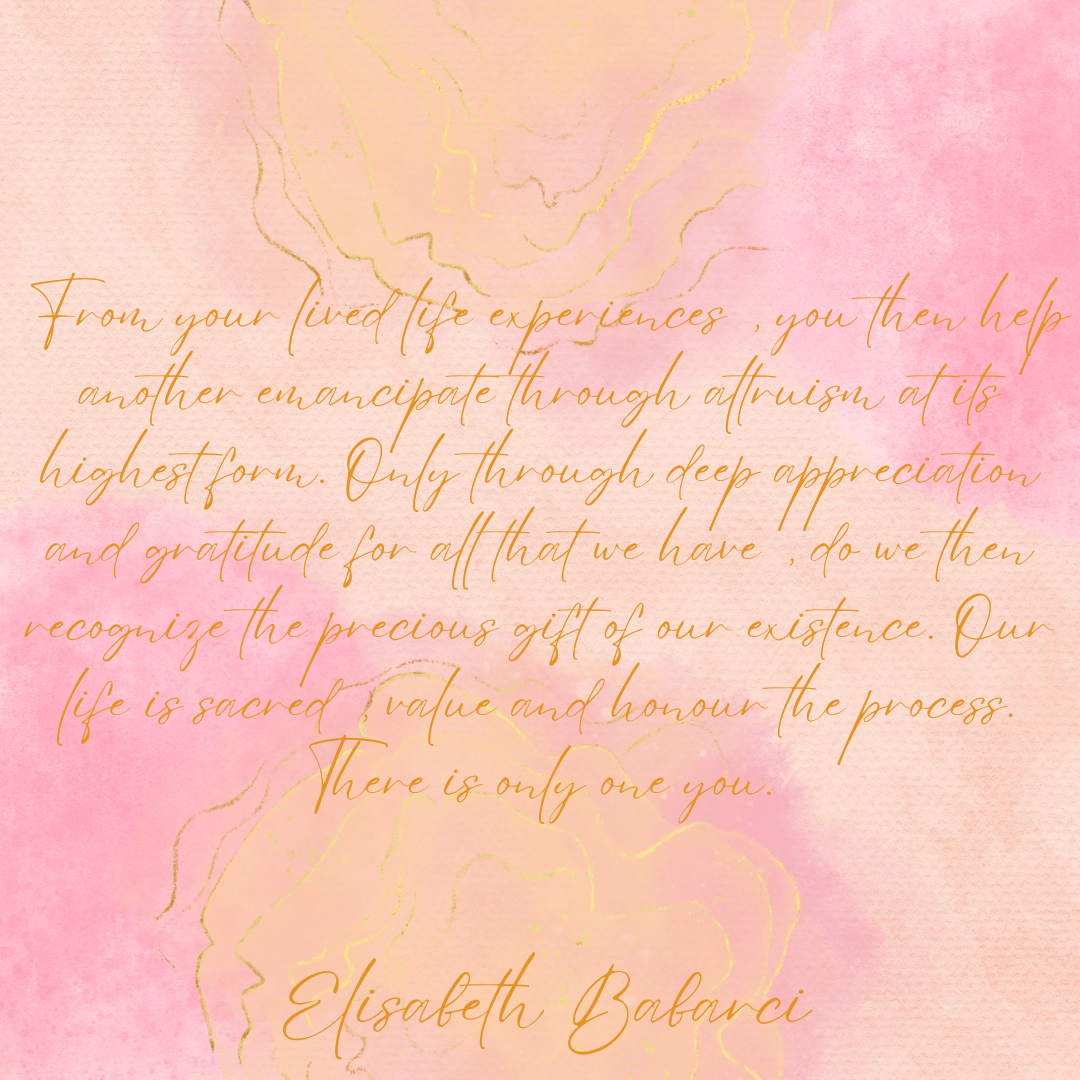 From your lived life experiences , you then help
another emancipate through altruism at its
highest form. Only through deep appreciation
and gratitude for all that we have , do we then
recognize the precious gift of our existence. Our
life is sacred , value and honour the process.
There is only one you.
Elisabeth Babarci